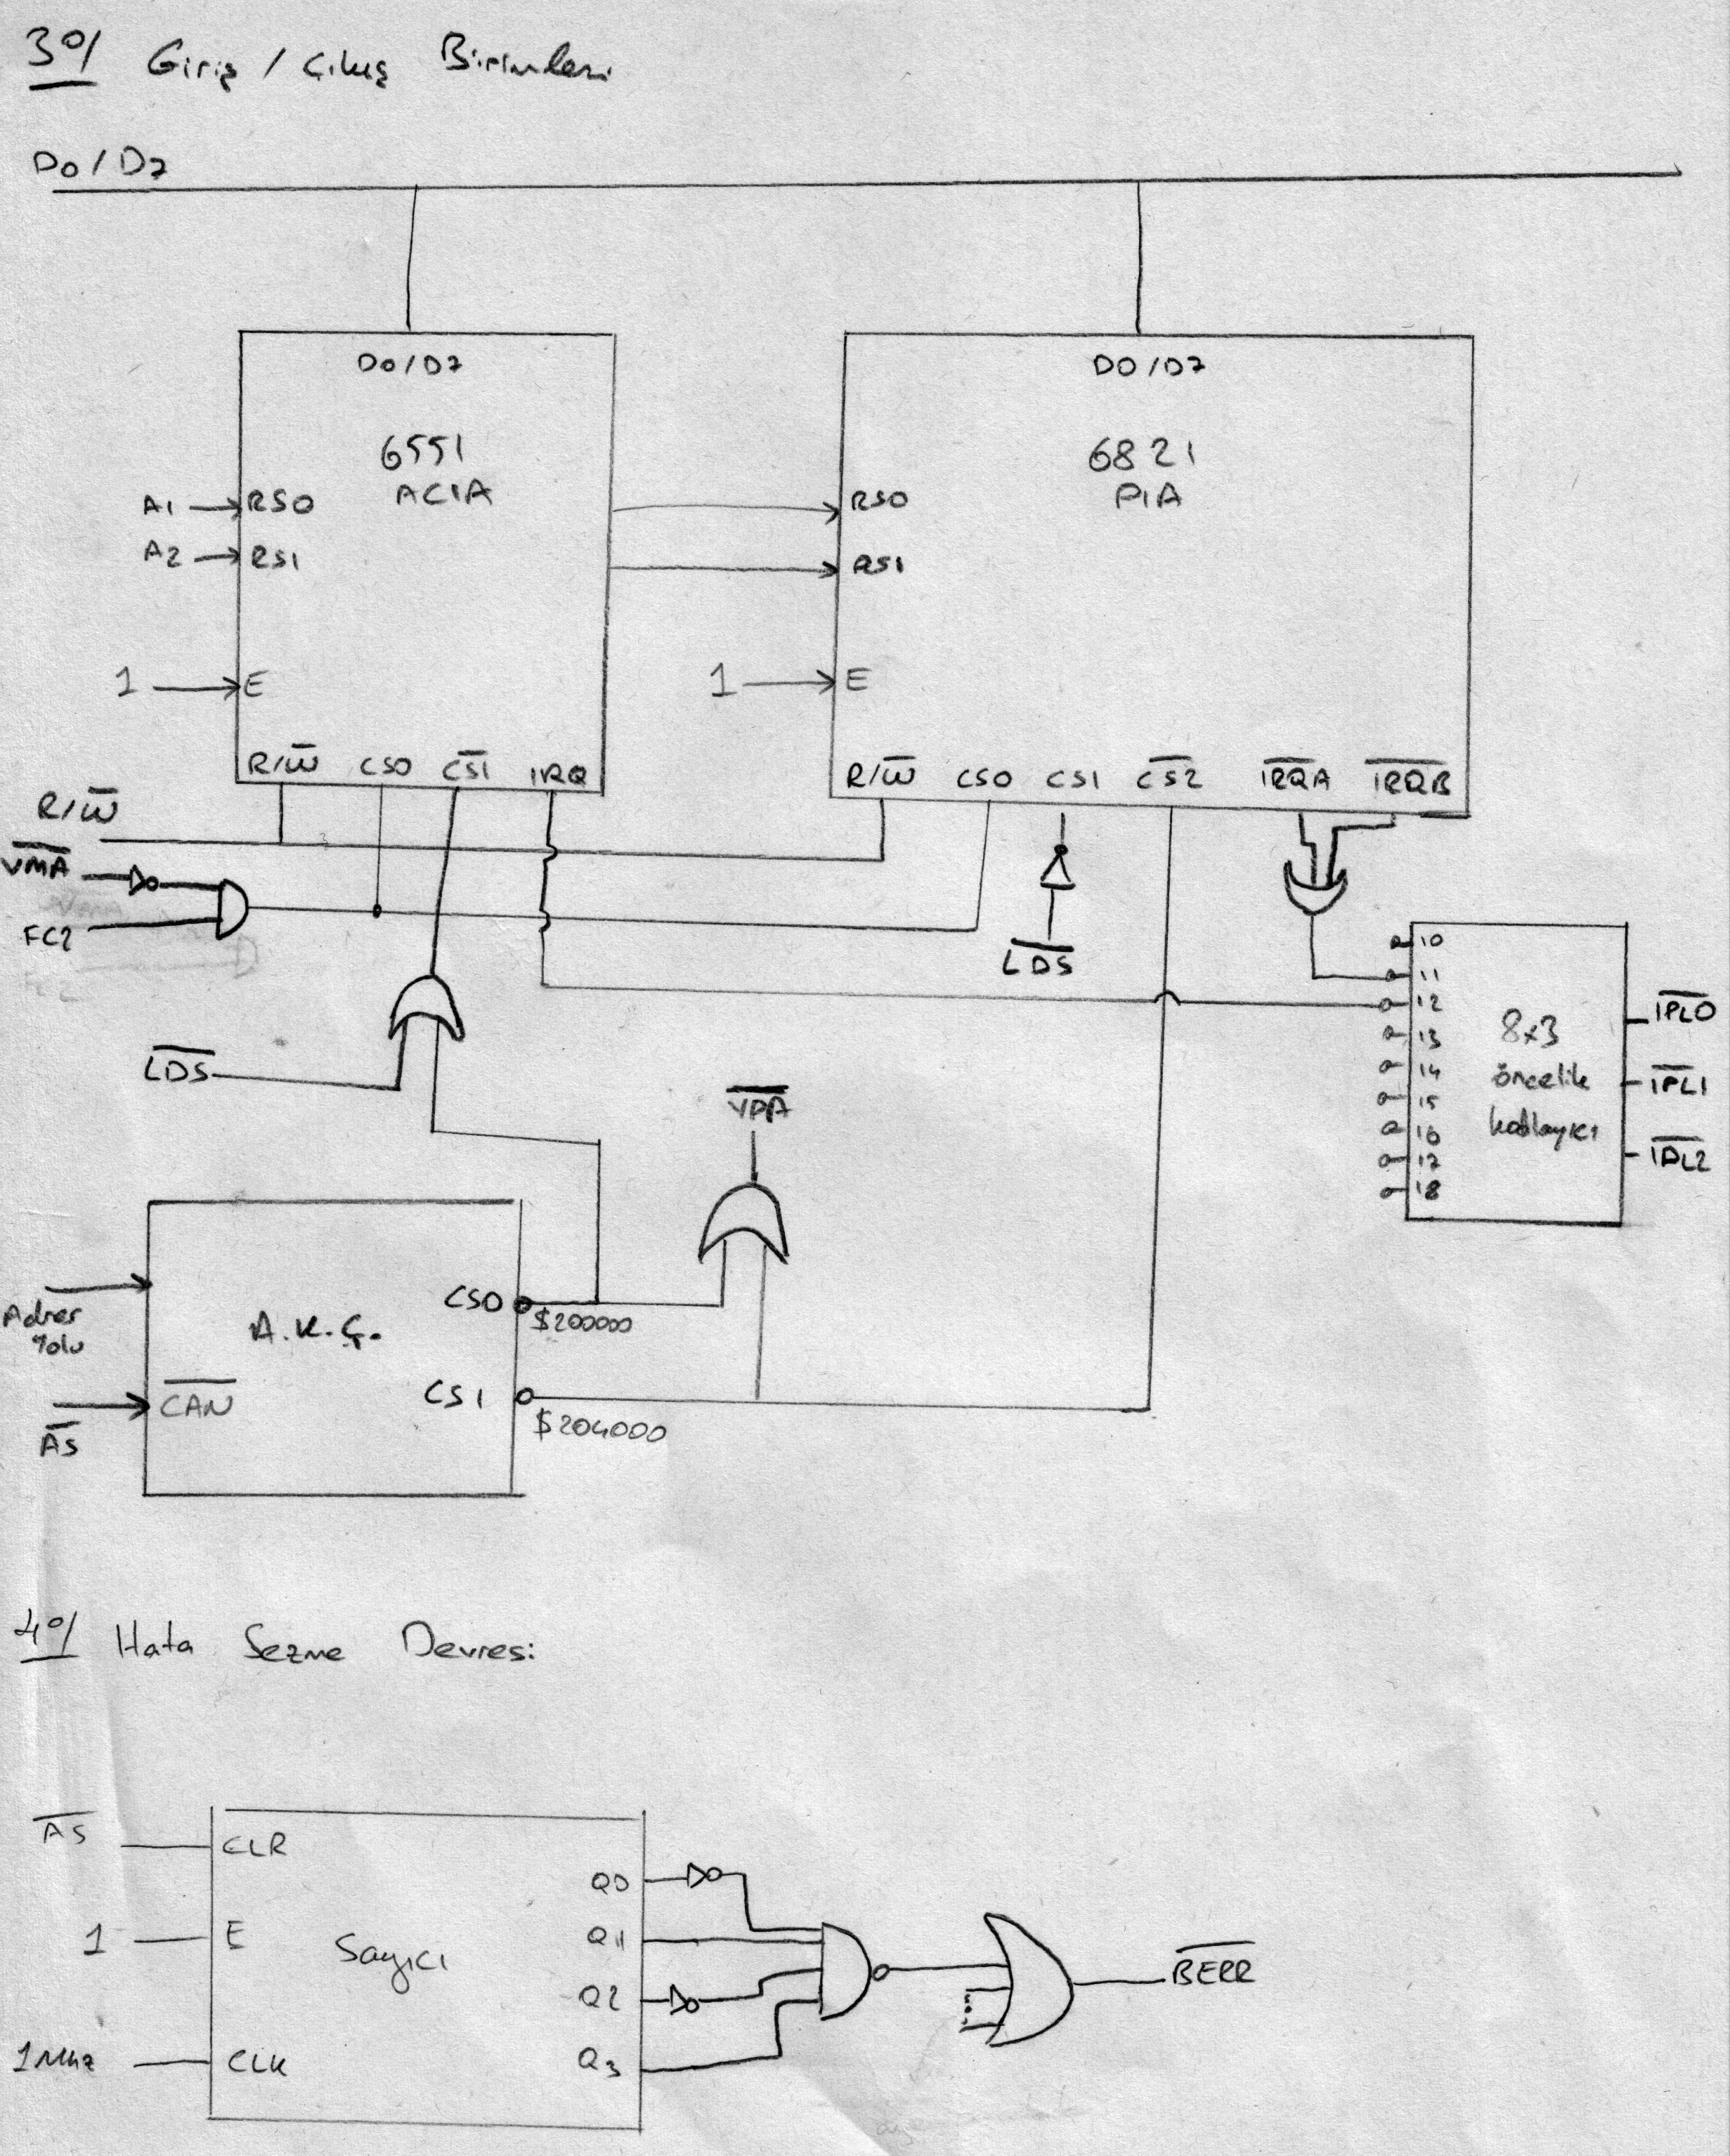 3°/ Giriş / Çıkış Birimleri
D0/D7
D0/D7
6551
ACIA
A1 RS0
A2 RS1
1 E
R/W̅ CS0 C̅S̅1̅ IRQ
D0/D7
6821
PIA
RS0
RS1
1 E
R/W̅ CS0 CS1 C̅S̅2̅ I̅R̅Q̅A̅ I̅R̅Q̅B̅
R/W̅
V̅M̅A̅
FC2
L̅D̅S̅
L̅D̅S̅
V̅P̅A̅
10
11
12
13
14
15
16
17
18
8x3
öncelik
kodlayıcı
I̅P̅L̅0̅
I̅P̅L̅1̅
I̅P̅L̅2̅
Adres
Yolu
A̅S̅
A.K.Ç.
C̅A̅N̅
CS0
$200000
CS1
$204000
4°/ Hata Sezme Devresi:
A̅S̅ CLR
1 E
1Mhz CLK
Sayıcı
Q0
Q1
Q2
Q3
B̅E̅R̅R̅